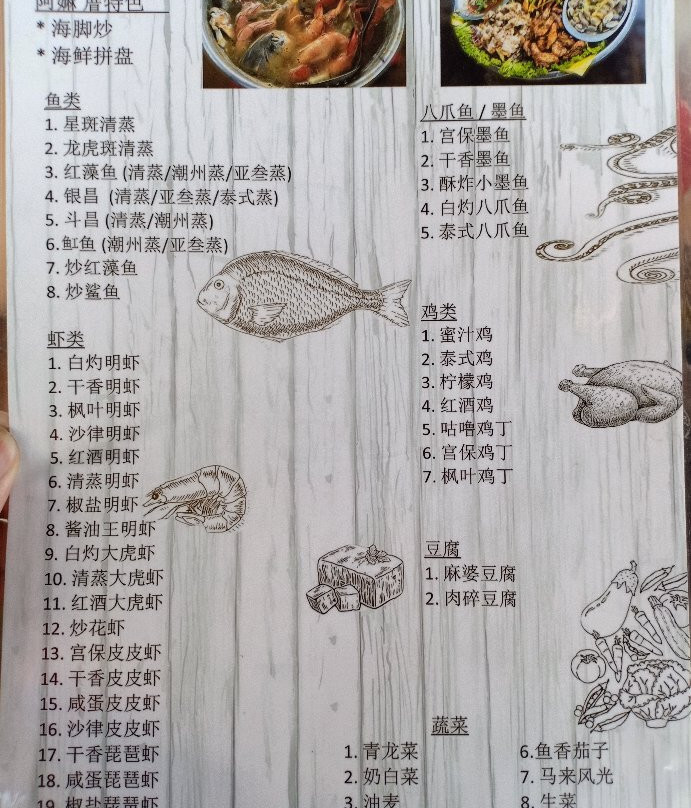 阿嫲 厝特色
* 海脚炒
* 海鲜拼盘
鱼类
1. 星斑清蒸
2. 龙虎斑清蒸
3. 红藻鱼 (清蒸/潮州蒸/亚叁蒸)
4. 银昌 (清蒸/亚叁蒸/泰式蒸)
5. 斗昌 (清蒸/潮州蒸)
6.魟鱼 (潮州蒸/亚叁蒸)
7. 炒红藻鱼
8. 炒鲨鱼
虾类
1. 白灼明虾
2. 干香明虾
3. 枫叶明虾
4. 沙律明虾
5. 红酒明虾
6. 清蒸明虾
7. 椒盐明虾
8. 酱油王明虾
9. 白灼大虎虾
10. 清蒸大虎虾
11. 红酒大虎虾
12. 炒花虾
13. 宫保皮皮虾
14. 干香皮皮虾
15. 咸蛋皮皮虾
16. 沙律皮皮虾
17. 干香琵琶虾
18. 咸蛋琵琶虾
19. 椒盐琵琶虾
八爪鱼 / 墨鱼
1. 宫保墨鱼
2. 干香墨鱼
3. 酥炸小墨鱼
4. 白灼八爪鱼
5. 泰式八爪鱼
鸡类
1. 蜜汁鸡
2. 泰式鸡
3. 柠檬鸡
4. 红酒鸡
5. 咕噜鸡丁
6. 宫保鸡丁
7. 枫叶鸡丁
豆腐
1. 麻婆豆腐
2. 肉碎豆腐
蔬菜
1. 青龙菜
2. 奶白菜
3. 油麦
6.鱼香茄子
7. 马来风光
8. 生菜